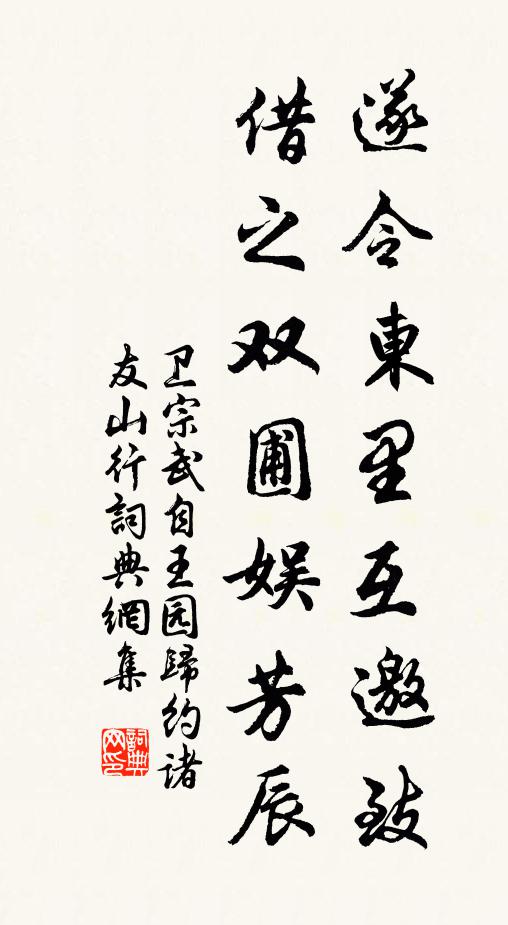 遂令東里互邀致
借之双圃娱芳辰
卫宗武自王园歸约诸
友山行詞典網集
詞典网印